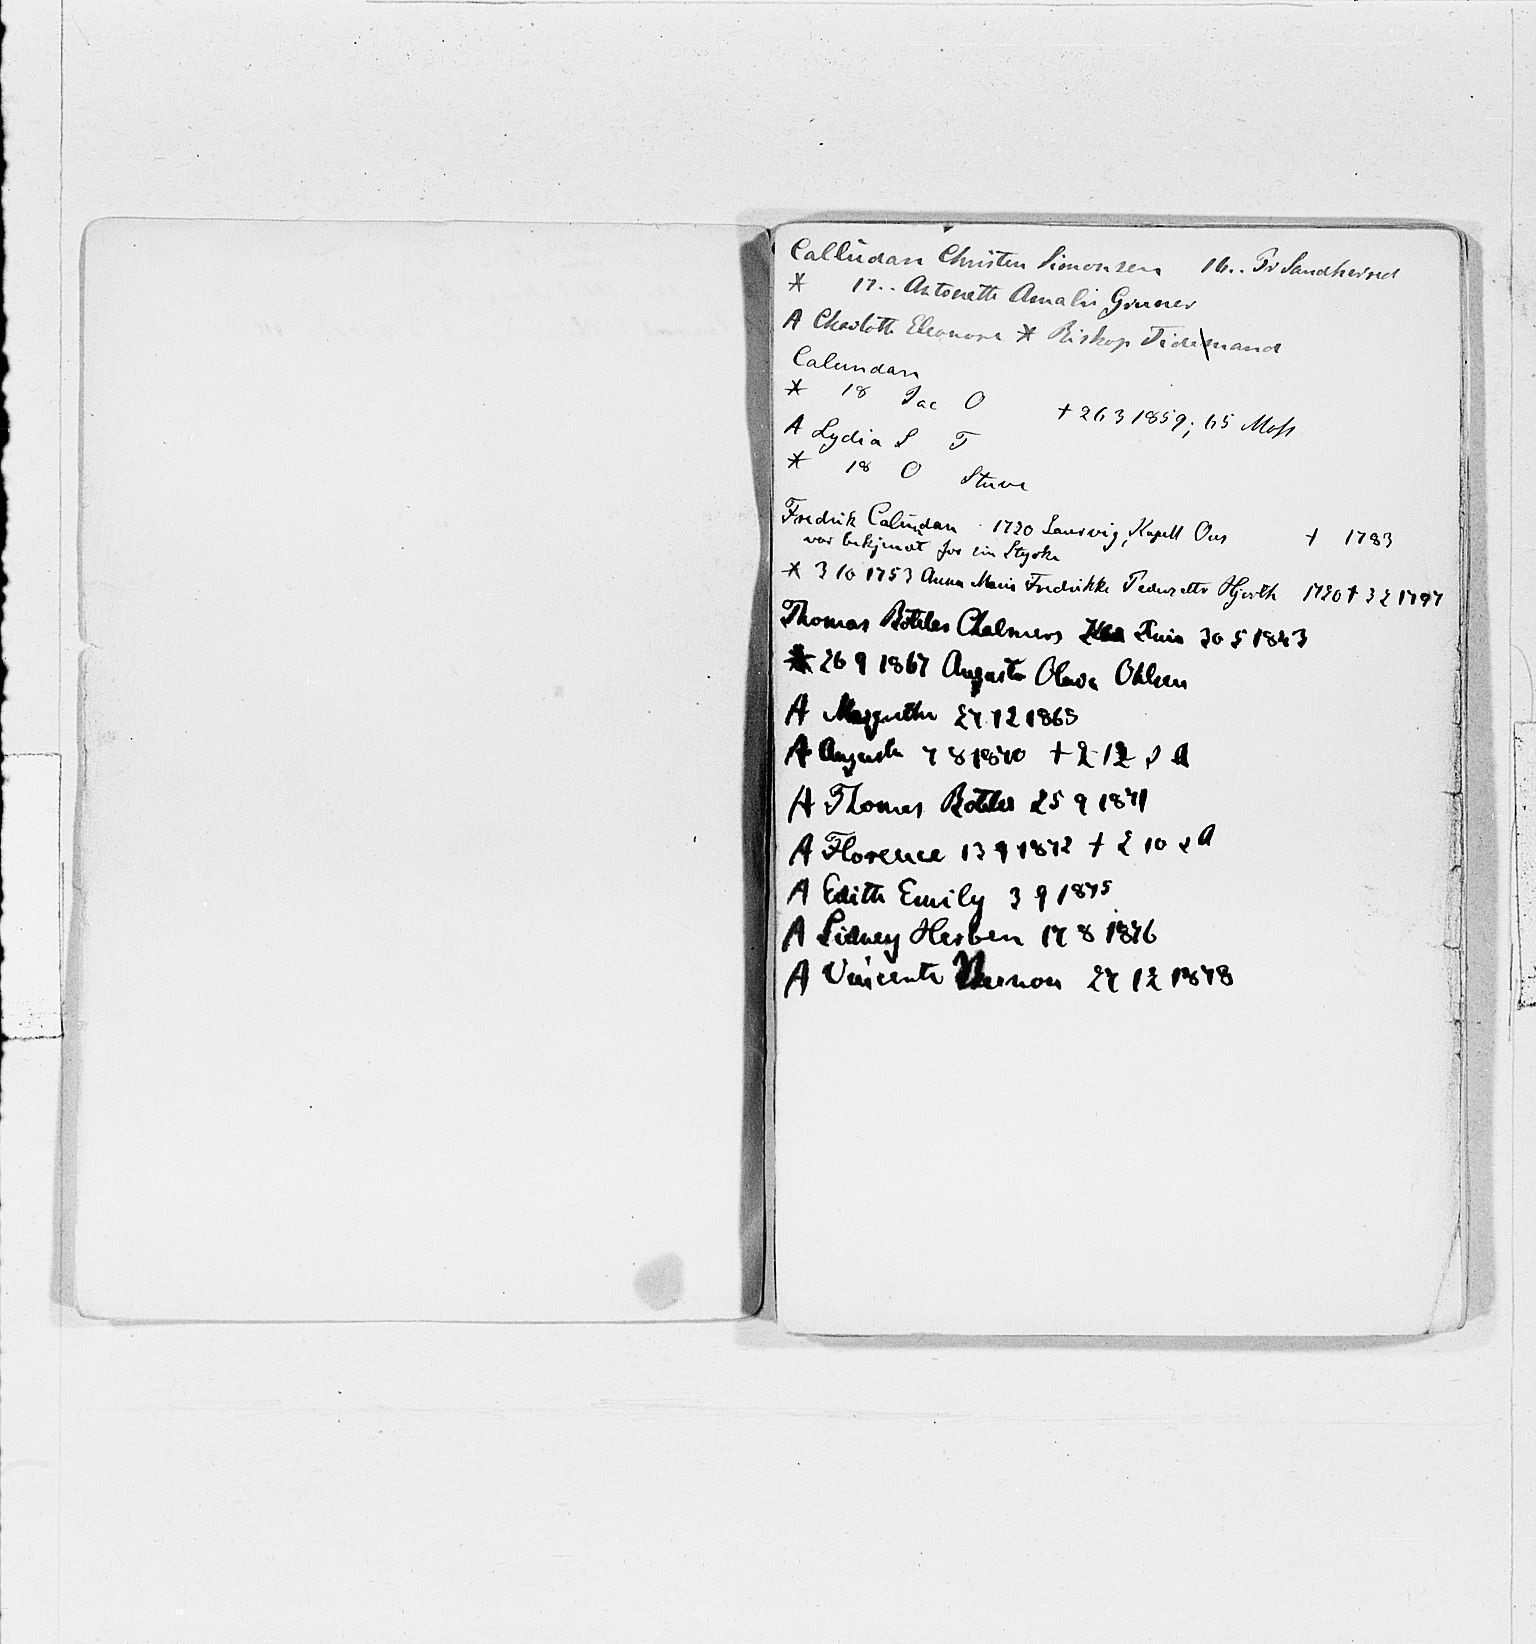 Callŭdan Christen Simonsen 16.. Pr Sandherred
* 17.. Antonette Amalie Gruner
A Charlotte Eleonore * Biskop Tidemand
Calundan
* 18 Jac O + 26 3 1859; 65 Moss
A Lydia S T
* 18 O Stuve
Fredrik Calŭndan 1720 Laurvig, Kapell Ous + 1783
var bekjendt for sin Styrke
* 3 10 1753 Anna Marie Fredrikke Pedersdtr Hjorth 1720 + 3 2 1797
Thomas Chalmers 30 5 1843
* 26 9 1867 Augusta Olava Ohlsen
A Margrethe 27 12 1868
A Augusta 7 8 1870 + 2 12 s A
A Thomas 25 9 1871
A Florence 13 9 1872 + 2 10 s A
A Edith Emily 3 9 1875
A Sidney Herben 17 8 1876
A Vincente Vernon 27 12 1878